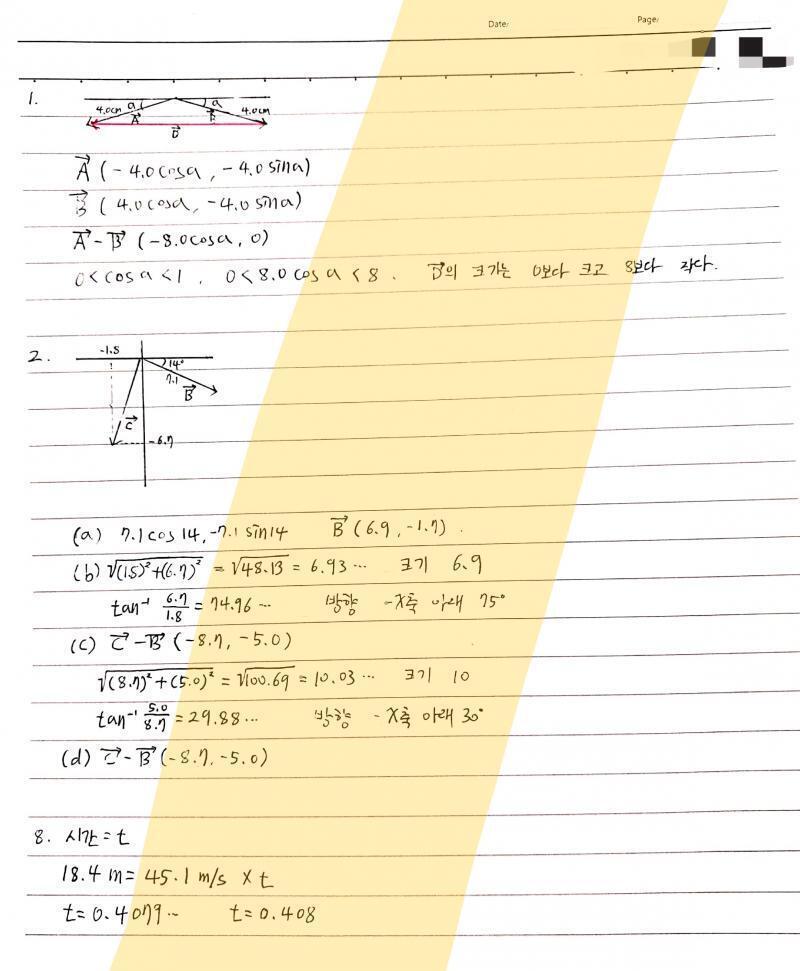 Date/ Page/
1.
4.0cm a a 4.0cm
A⃗ B⃗
D⃗
A⃗ (-4.0cosa, -4.0sina)
B⃗ (4.0cosa, -4.0sina)
A⃗-B⃗ (-8.0cosa, 0)
0<cosa<1, 0<8.0cosa<8. D⃗의 크기는 0보다 크고 8보다 작다.
2.
-1.8
14°
7.1
B⃗
C⃗
-6.7
(a) 7.1cos14, -7.1sin14 B⃗(6.9, -1.7).
(b) √(1.5)²+(6.7)² = √48.13 = 6.93··· 크기 6.9
tan⁻¹ 6.7/1.8 = 74.96··· 방향 -X축 아래 75°
(c) C⃗-B⃗ (-8.7, -5.0)
√(8.7)²+(5.0)² = √100.69 = 10.03··· 크기 10
tan⁻¹ 5.0/8.7 = 29.88··· 방향 -X축 아래 30°
(d) C⃗-B⃗(-8.7, -5.0)
8. 시간=t
18.4m=45.1m/s×t
t=0.4079·· t=0.408